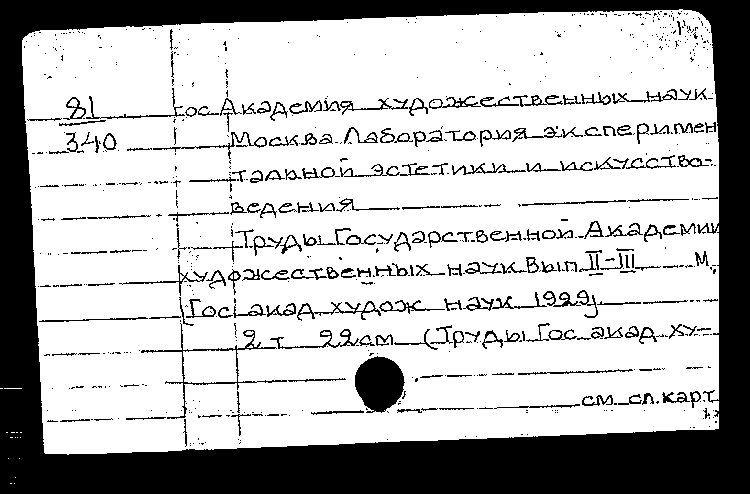 81
340
Гос Академия художественных наук
Москва Лаборатория эксперимен
тальной эстетики и искусство-
ведения
Труды Государственной Академии
художественных наук Вып II-III М,
[Гос акад худож наук 1929]
2 т 22см (Труды Гос акад ху-
см сл.карт